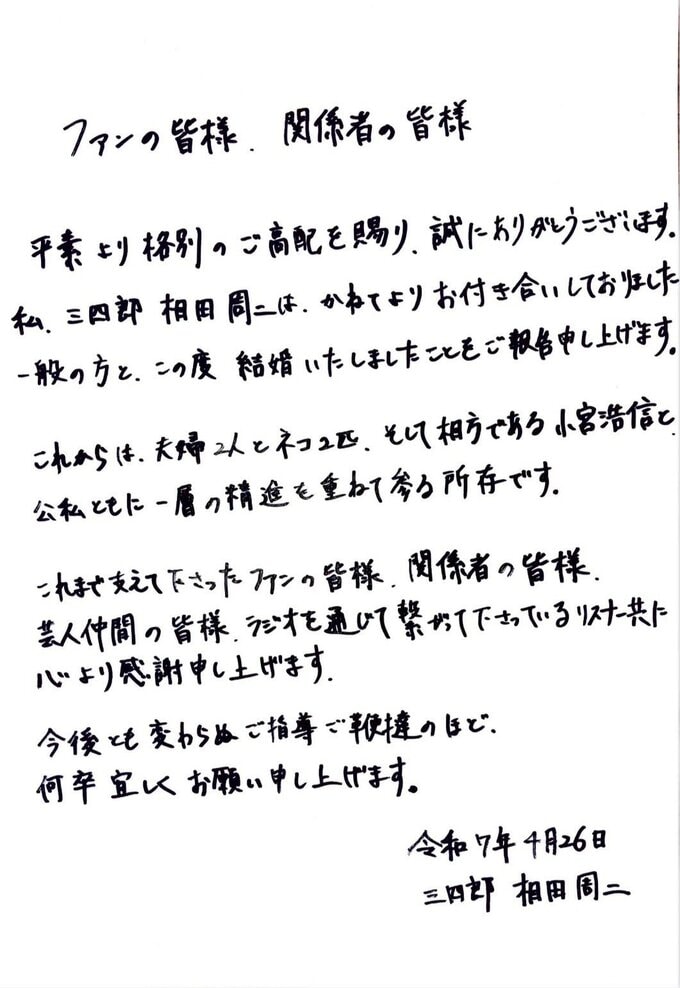 ファンの皆様、関係者の皆様
平素より格別のご高配を賜り、誠にありがとうございます。
私、三四郎 相田周二は、かねてよりお付き合いしておりました
一般の方と、この度 結婚いたしましたことをご報告申し上げます。
これからは、夫婦2人とネコ2匹、そして相方である小宮浩信と、
公私ともに一層の精進を重ねて参る所存です。
これまで支えて下さったファンの皆様、関係者の皆様、
芸人仲間の皆様、ラジオを通じて繋がって下さっているリスナー共に
心より感謝申し上げます。
今後とも変わらぬご指導ご鞭撻のほど、
何卒宜しくお願い申し上げます。
令和7年4月26日
三四郎 相田周二